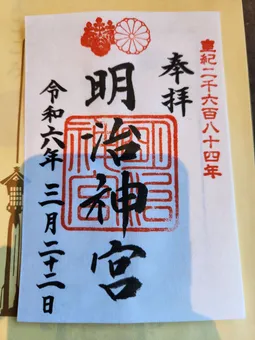 皇紀二千六百八十四年
奉拝
明治神宮
令和六年三月二十二日
明治神宮